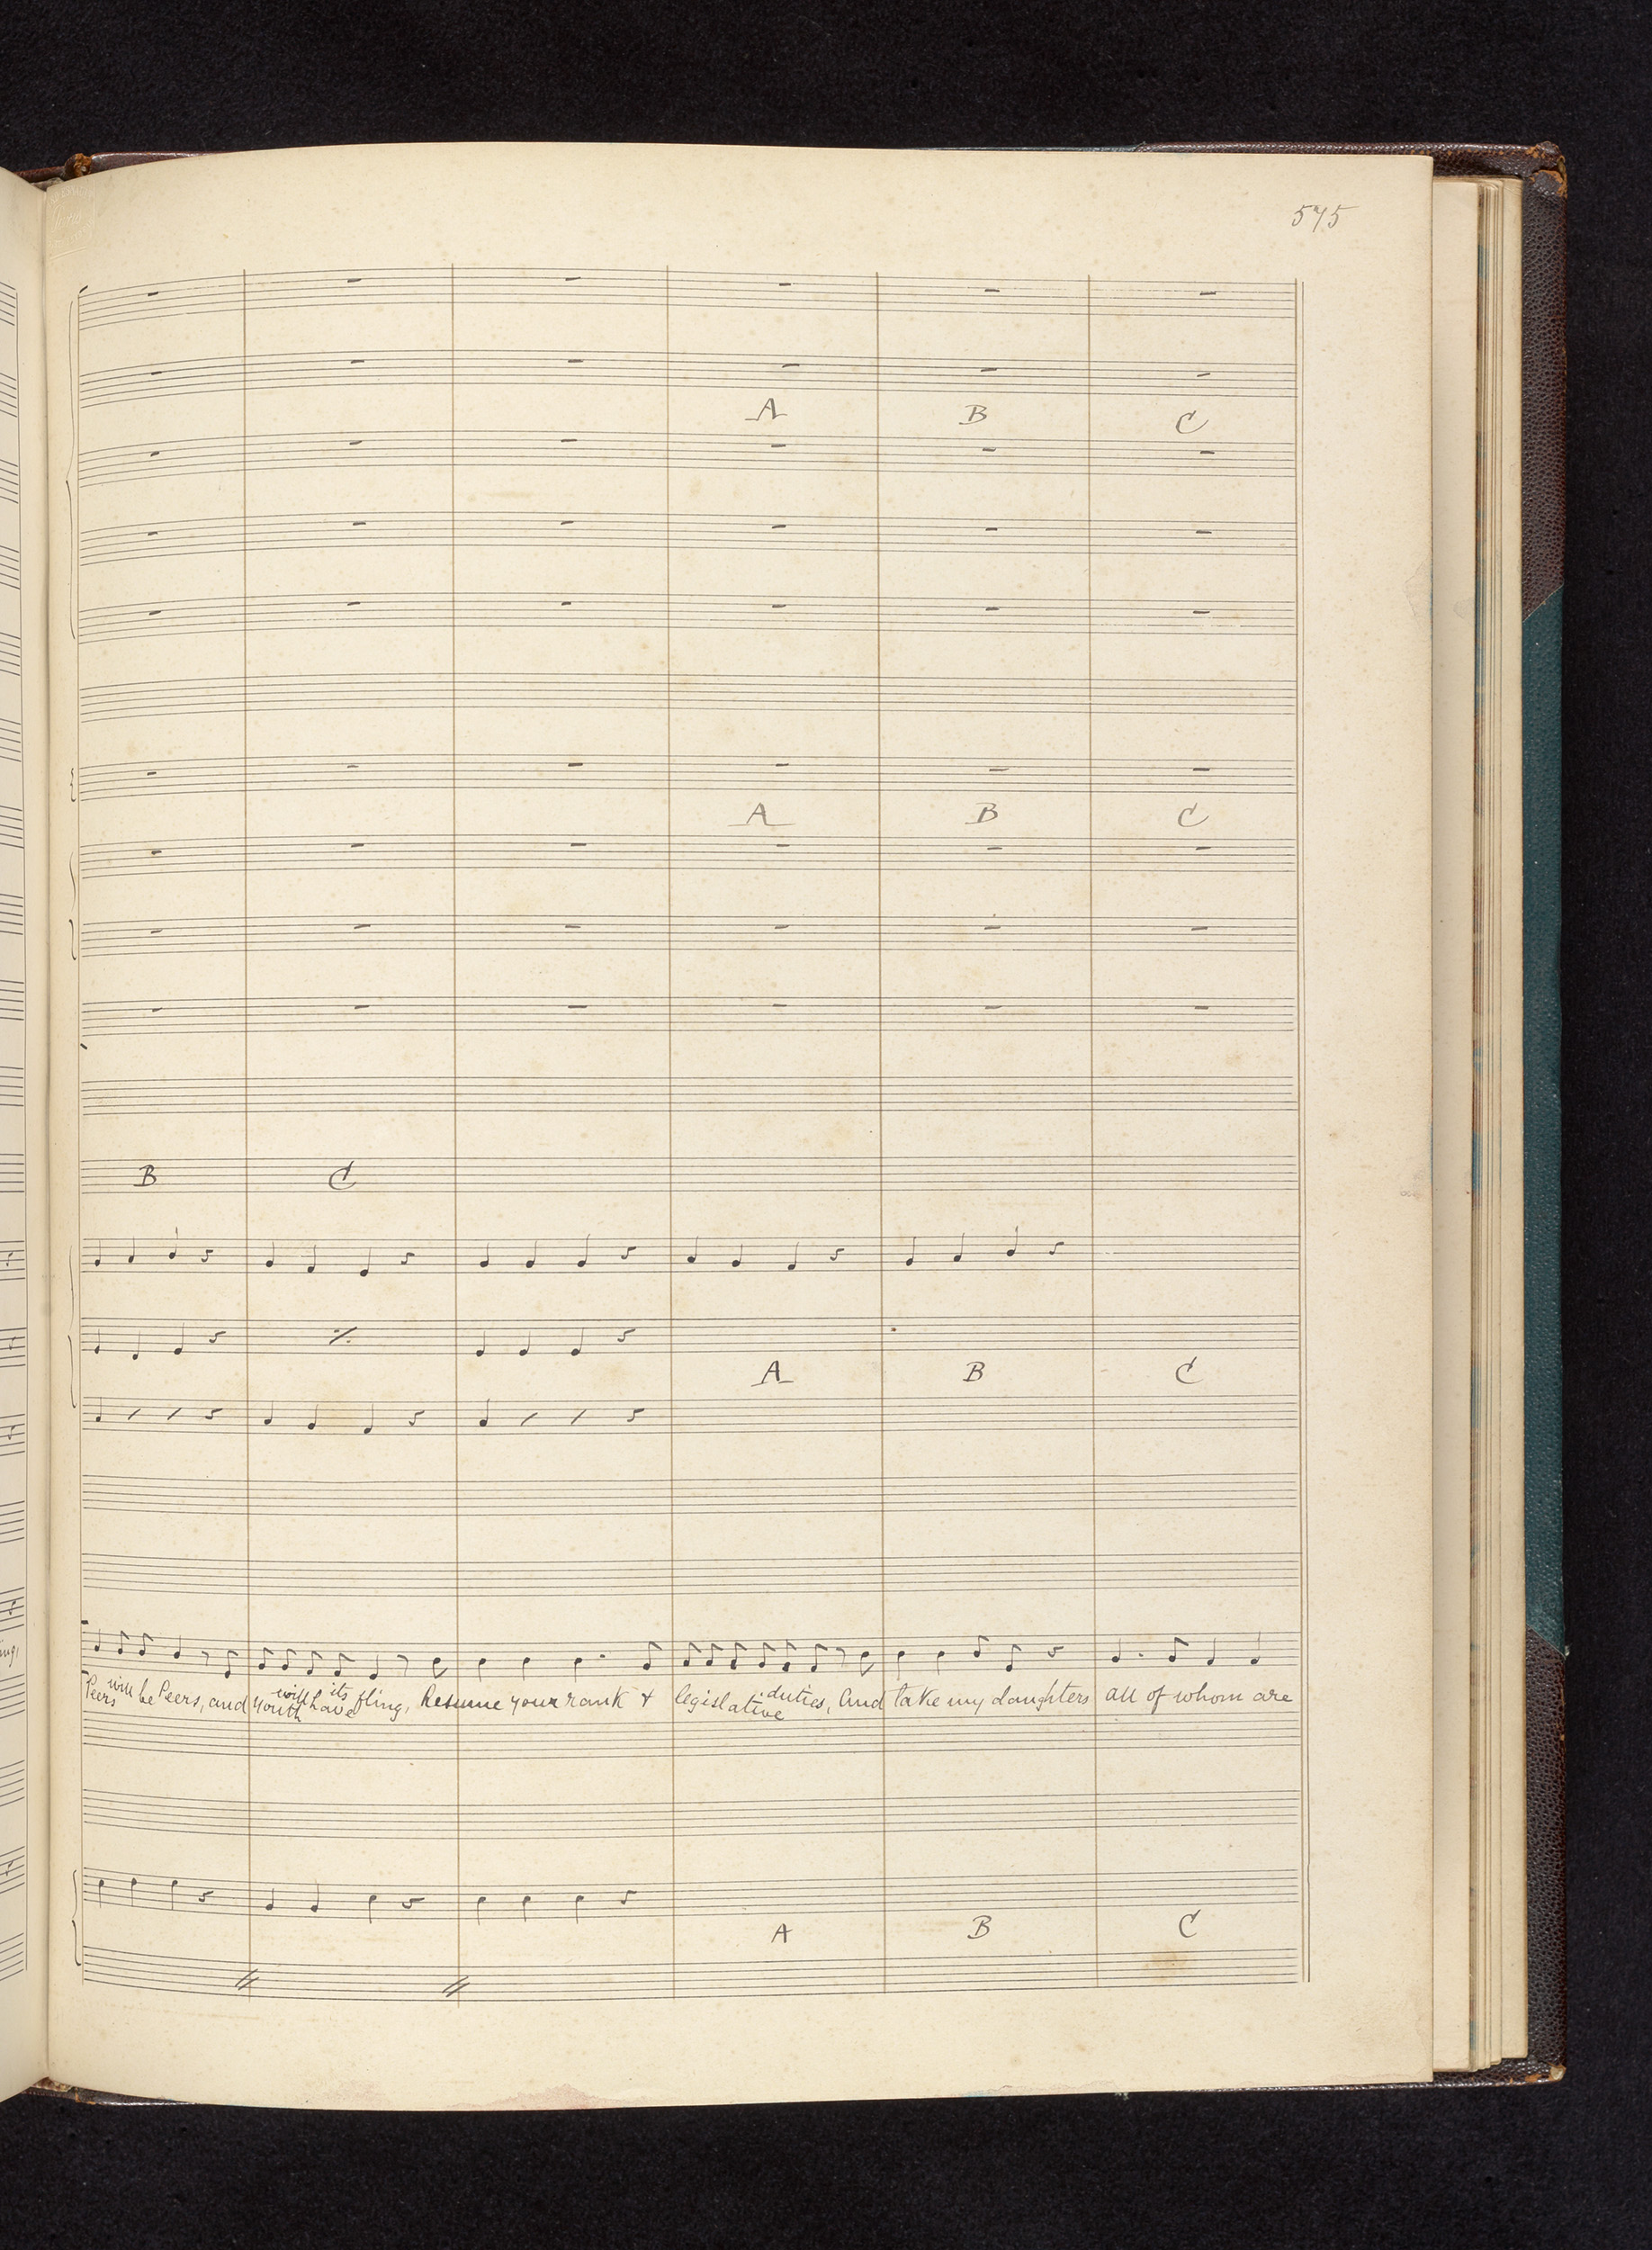 575
A B C
A B C
B C
A B C
Peers will be Peers, and youth will have its fling, Resume your rank & legislative duties, And take my daughters all of whom are
A B C